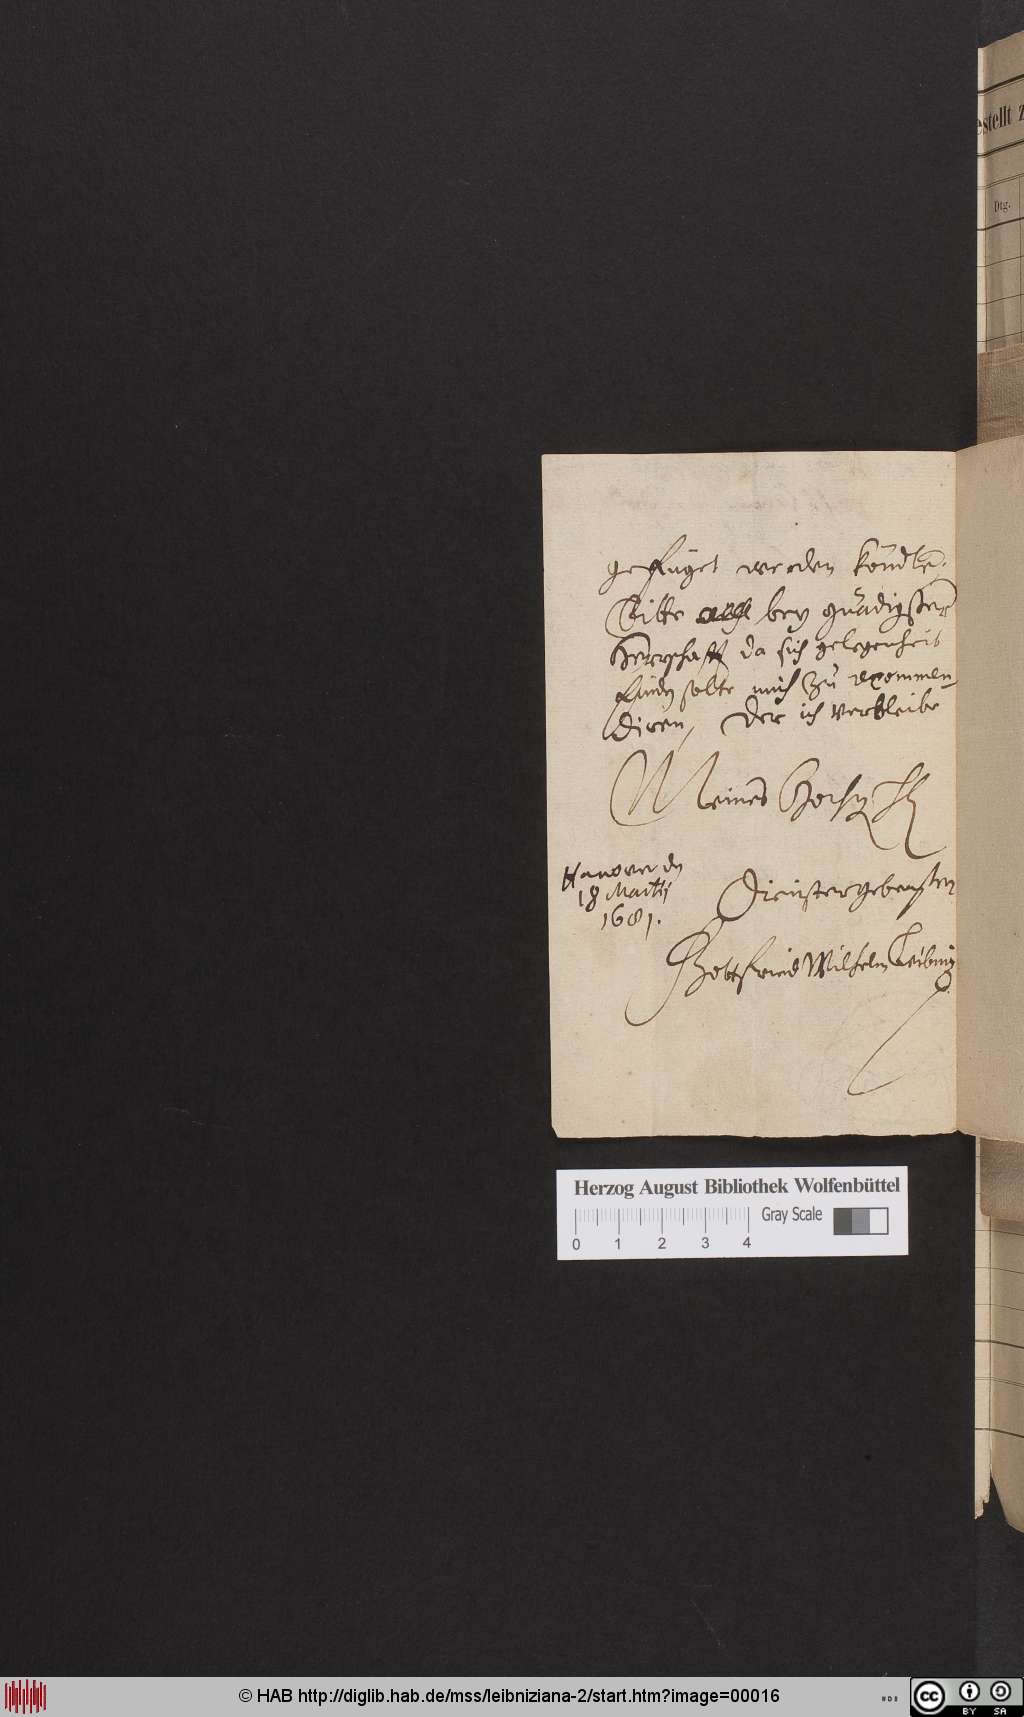 gefüget werden köndte.
Bitte auch bey gnädigster
Herrschafft da sich gelegenheit
finden solte mich zu recommen-
diren, der ich verbleibe
Meines
Hanover den
18 Martij
1681.
Dienstergebenster
Gottfried Wilhelm Leibniz
estellt z
Dtg.
Herzog August Bibliothek Wolfenbüttel
Gray Scale
0 1 2 3 4
© HAB http://diglib.hab.de/mss/leibniziana-2/start.htm?image=00016
cc BY SA